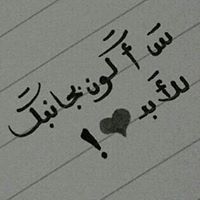 سَأكون بجانبكَ
للأبد ♥!